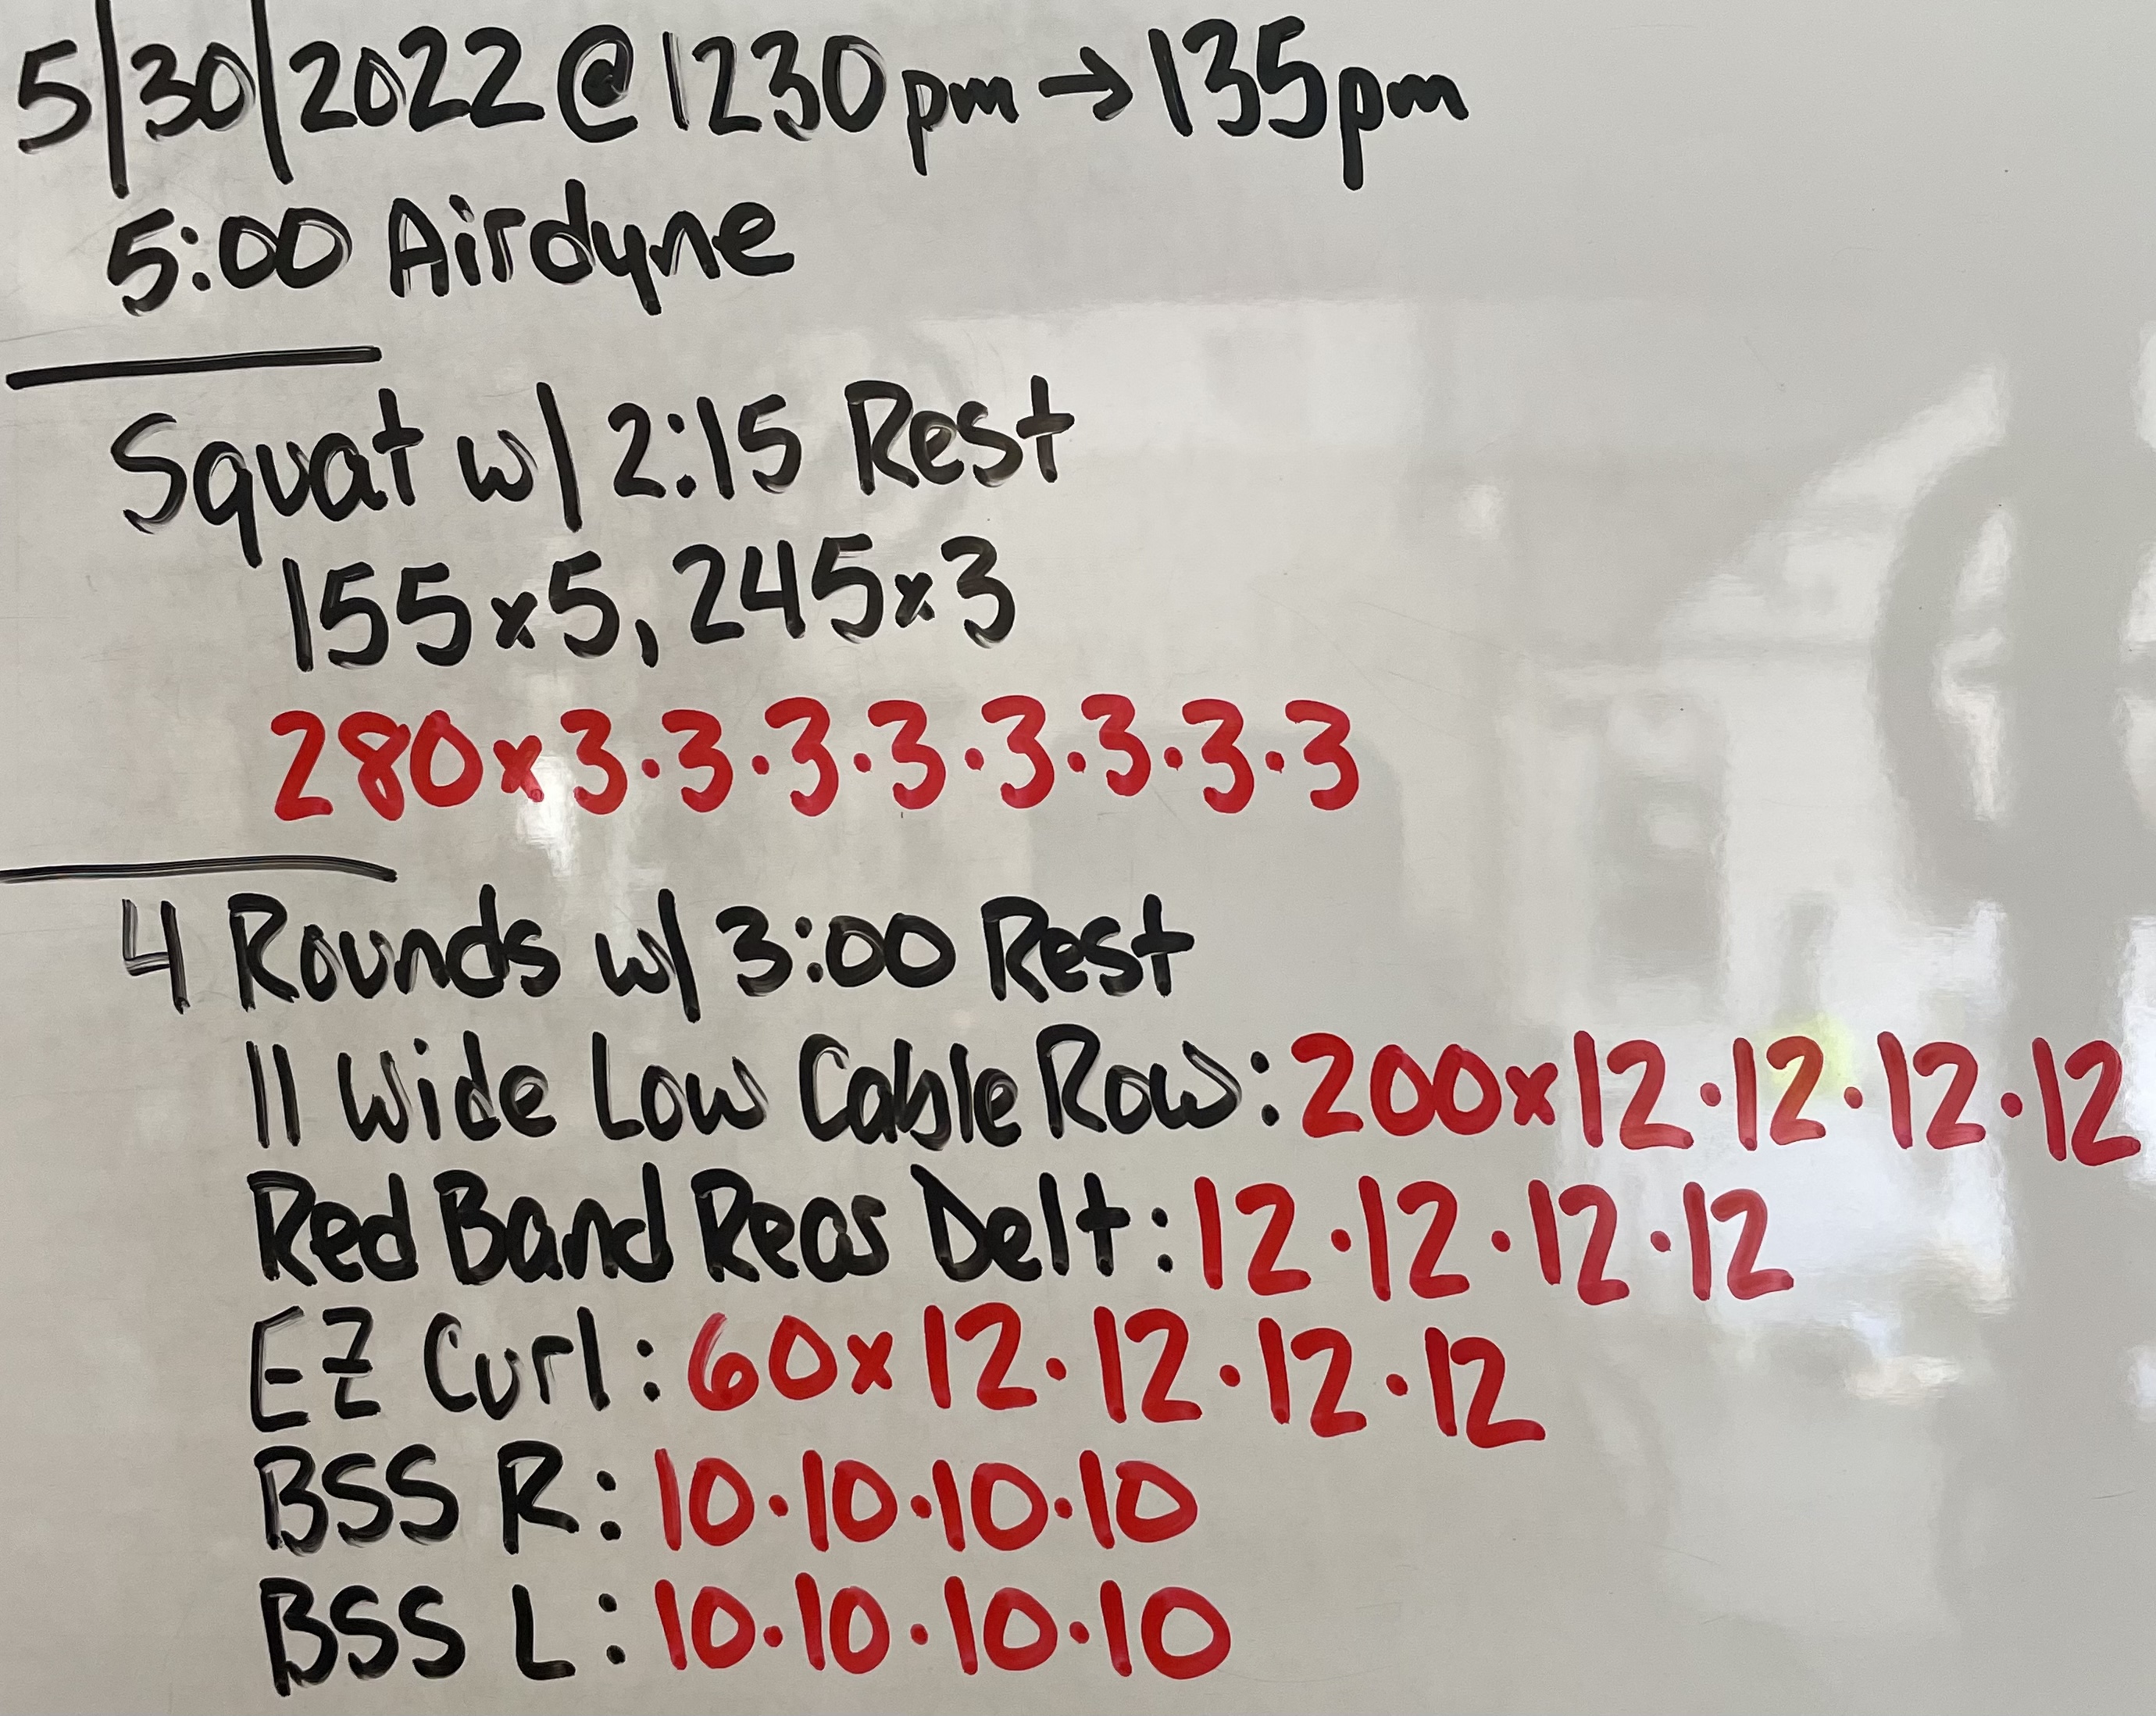 5/30/2022 @ 1230pm → 135pm
5:00 Airdyne
Squat w/ 2:15 Rest
155x5, 245x3
280x3·3·3·3·3·3·3·3
4 Rounds w/ 3:00 Rest
|| Wide Low Cable Row: 200x12·12·12·12
Red Band Rear Delt: 12·12·12·12
EZ Curl: 60x12·12·12·12
BSS R: 10·10·10·10
BSS L: 10·10·10·10